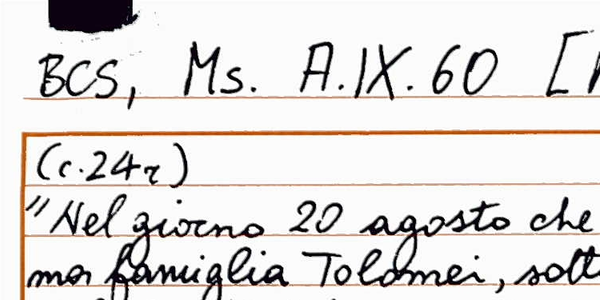 BCS, Ms. A.IX.60 [
(c.24r)
"Nel giorno 20 agosto che
ma famiglia Tolomei, sott